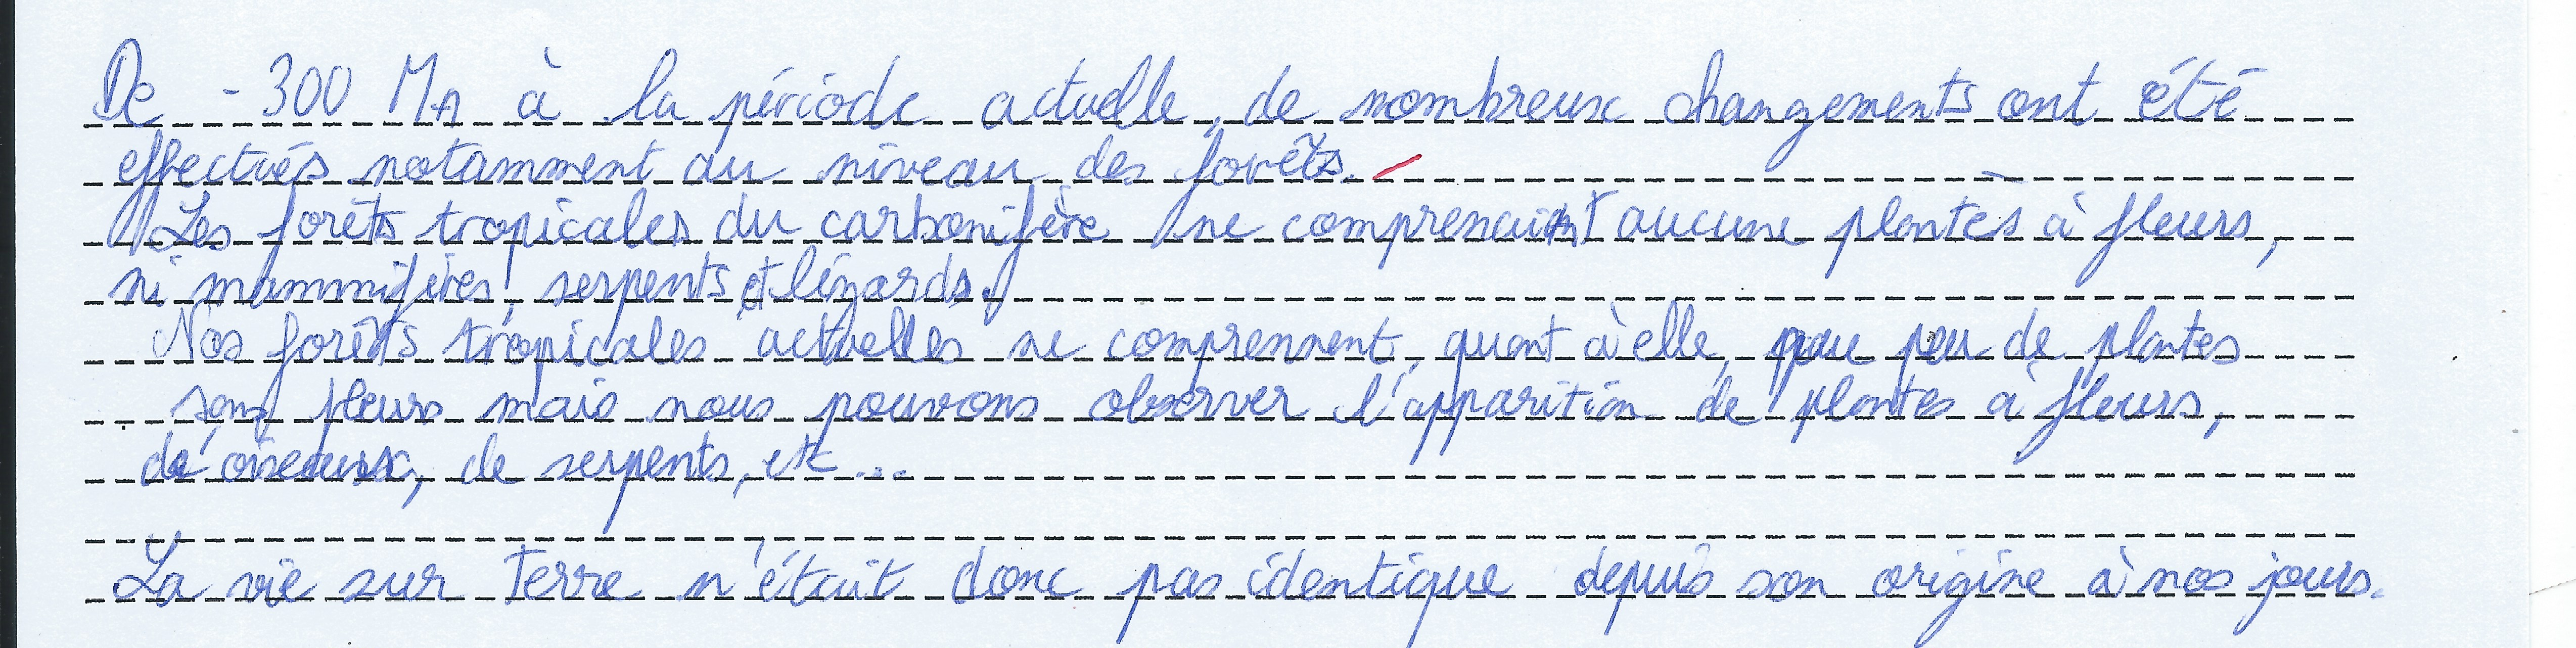 De -300 MA à la période actuelle, de nombreux changements ont été
effectués notamment au niveau des forêts.
Les forêts tropicales du carbonifère ne comprenaient aucune plantes à fleurs,
ni mammifères, serpents et lézards.
Nos forêts tropicales actuelles ne comprennent, quant à elle, que peu de plantes
sans fleurs mais nous pouvons observer l'apparition de plantes à fleurs,
d'oiseaux, de serpents, etc...
La vie sur Terre n'était donc pas identique depuis son origine à nos jours.